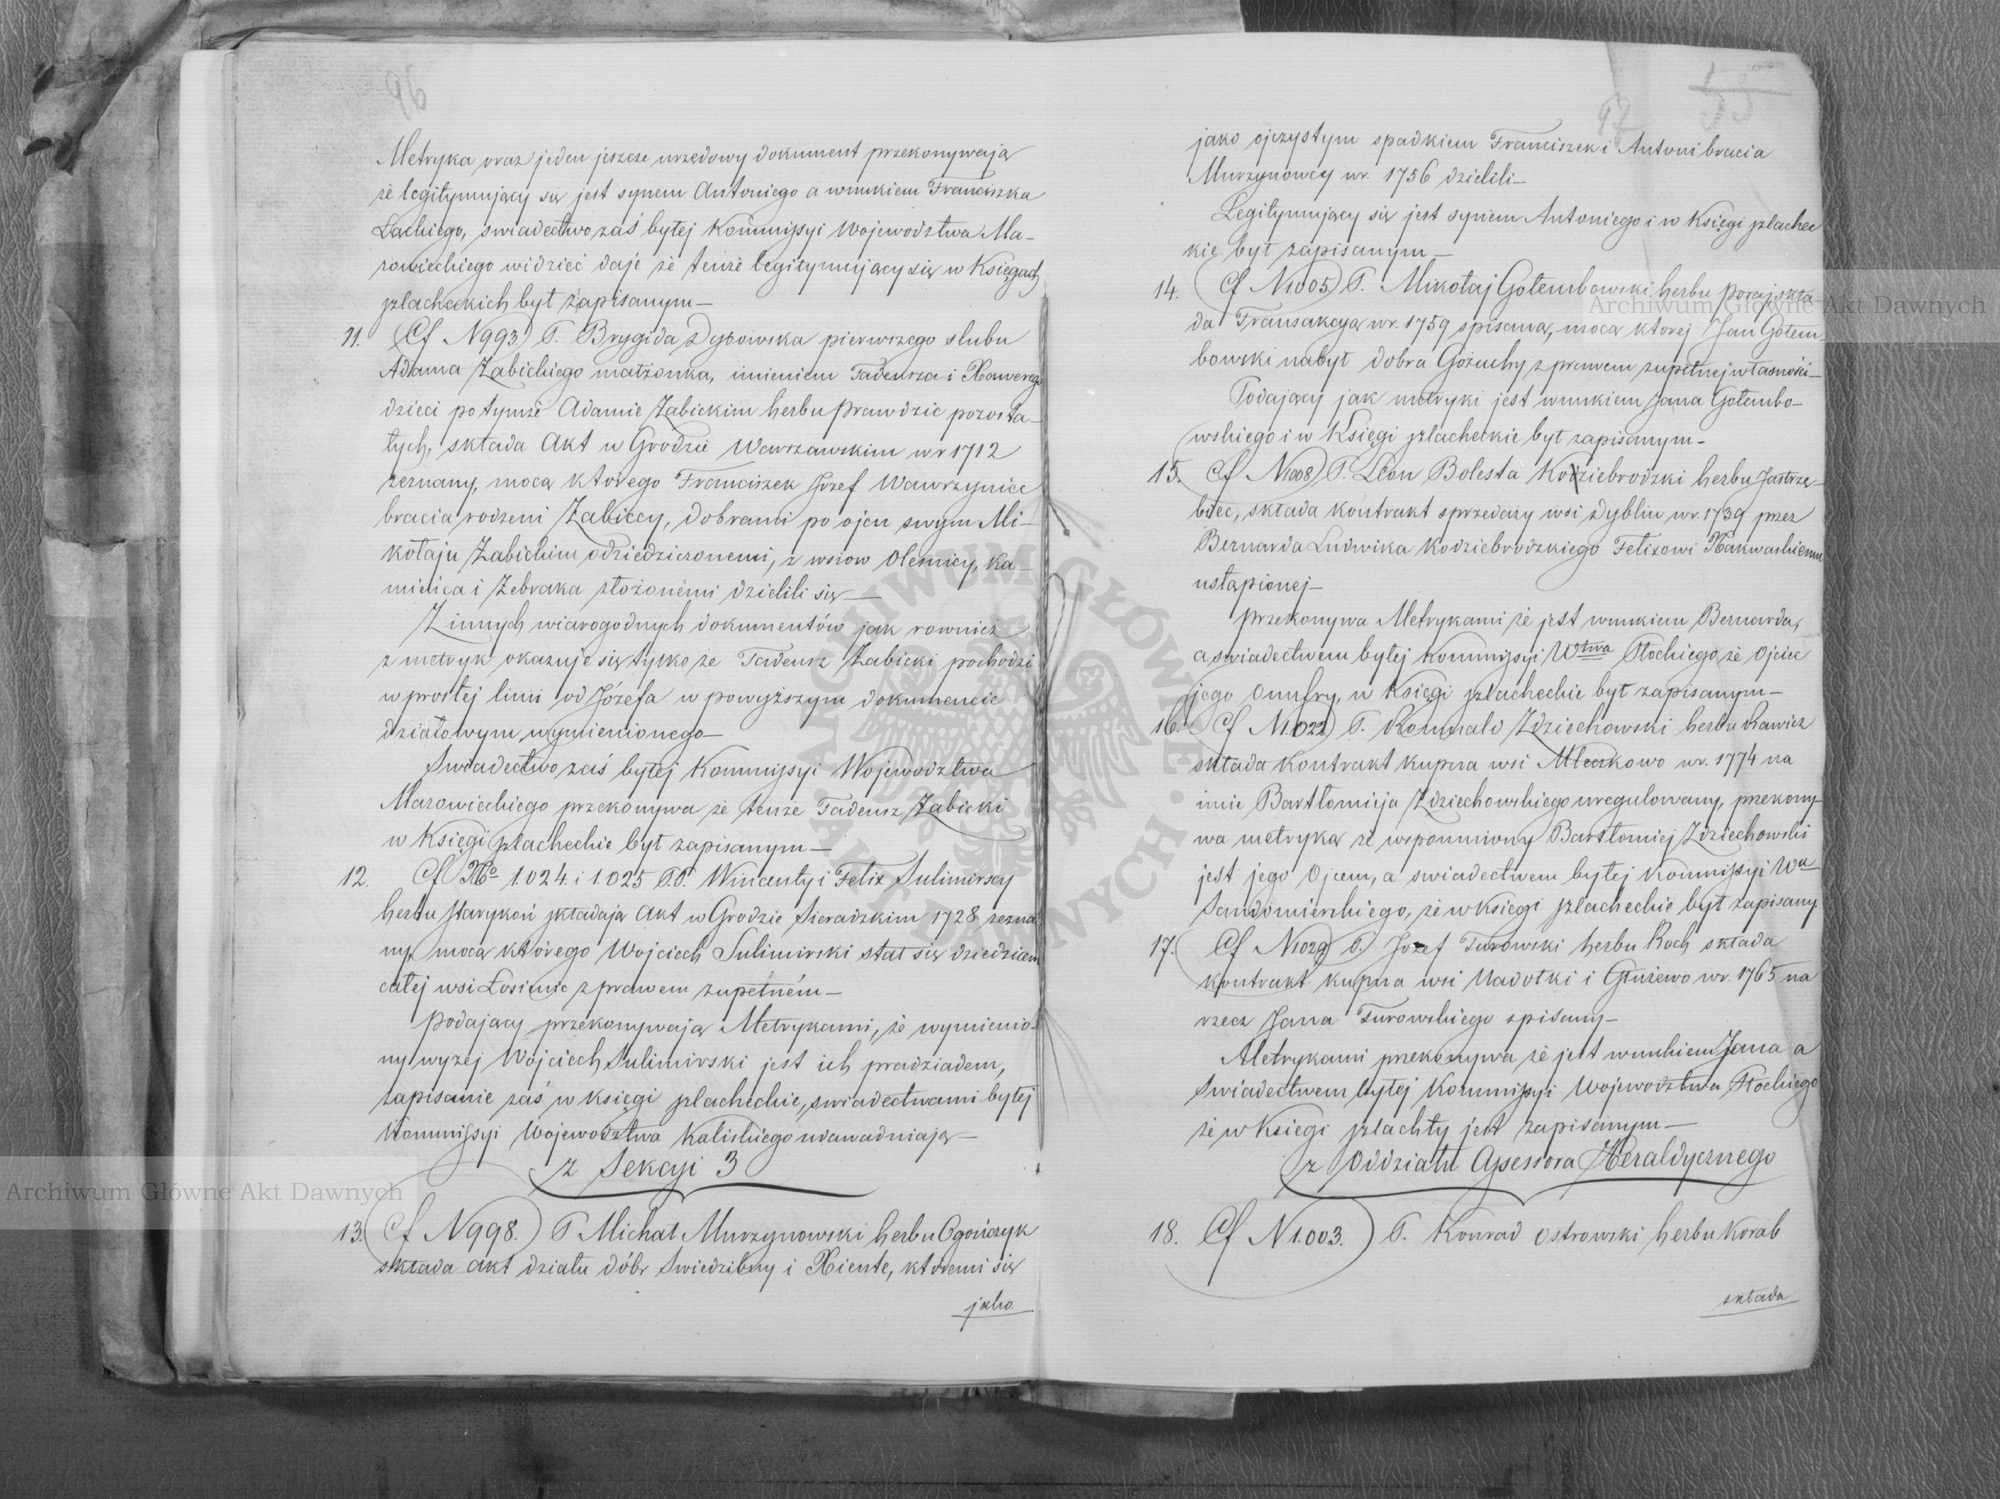 96
Metryka oraz jeden jeszcze urzędowy dokument przekonywają
że legitymujący się jest synem Antoniego a wnukiem Franciszka
Lackiego, swiadectwo zaś byłej Kommissyi Województwa Ma-
zowieckiego widzieć daje że tenże legitymujący się w Księgach
szlacheckich był zapisanym –
11. Cf N 993) P. Brygida Dybowska pierwszego slubu
Adama Żabickiego małżonka, imieniem Tadeusza i Xawerego
dzieci po tymże Adamie Żabickim herbu Prawdzic pozosta-
łych, składa Akt w Grodzie Warszawskim w r 1712
zeznany, mocą ktorego Franciszek Jozef Wawrzyniec
bracia rodzeni Żabiccy, dobrami po ojcu swym Mi-
kołaju Żabickim odziedziczonemi, z wsiow Olesnicy, Ka-
mieńca i Żebraka złożonémi dzielili się –
Z innych wiarogodnych dokumentów jak rownież
z metryk okazuje się tylko że Tadeusz Żabicki pochodzi
w prostej linii od Józefa w powyższym dokumencie
działowym wymienionego –
Swiadectwo zaś byłej Kommissyi Województwa
Mazowieckiego przekonywa że tenże Tadeusz Żabicki
w Księgi szlacheckie był zapisanym –
12. Cf No 1.024. i 1.025 P.P. Wincenty i Felix Sulimirscy
herbu Starykoń składają Akt w Grodzie Sieradzkim 1728 zezna
ny, mocą ktorego Wojciech Sulimirski stał się dziedzicem
całej wsi Łosiniec z prawem zupełném –
Podający przekonywają Metrykami, że wymienio-
ny wyzej Wojciech Sulimirski jest ich pradziadem,
zapisanie zaś w księgi szlacheckie, swiadectwami byłej
Kommissyi Województwa Kaliskiego udowadniają –
z Sekcyi 3
13. Cf N 998.) P. Michał Murzynowski herbu Ogończyk
składa akt działu dóbr Swiedziebny i Xiente, ktoremi się
jako
97
jako ojczystym spadkiem Franciszek i Antoni bracia
Murzynowcy w r. 1756 dzielili –
Legitymujący się jest synem Antoniego i w Księgi szlachec
kie był zapisanym –
14. Cf N 1005) P. Mikołaj Gołembowski herbu Poraj skła
da Transakcyą w r. 1759 spisaną, mocą ktorej Jan Gołem
bowski nabył dobra Gożuchy z prawem zupełnej własności –
Podający jak metryki jest wnukiem Jana Gołembo-
wskiego i w Księgi szlacheckie był zapisanym –
15. Cf N 1008) P. Leon Bolesta Koziebrodzki herbu Jastrzę-
biec, składa kontrakt sprzedaży wsi Dyblin w r. 1739 przez
Bernarda Ludwika Kodziebrodzkiego Felixowi Nakwaskiemu
ustąpionej –
Przekonywa Metrykami że jest wnukiem Bernarda,
a swiadectwem byłej Kommissyi Wtwa Płockiego, że Ojciec
jego Onufry, w Księgi szlacheckie był zapisanym –
16. Cf N 1.022) P. Romuald Zdziechowski herbu Rawicz
składa Kontrakt kupna wsi Mleczkowo w r. 1774 na
imie Bartłomieja Zdziechowskiego uregulowany, przekony
wa metryką że wspomniony Bartłomiej Zdziechowski
jest jego Ojcem, a swiadectwem byłej Kommissyi Wa
Sandomierskiego, że w księgi szlacheckie był zapisany
17. Cf N 1029) P. Józef Turowski herbu Roch składa
kontrakt kupna wsi Nadołki i Głużewo w r. 1765 na
rzecz Jana Turowskiego spisany –
Metrykami przekonywa że jest wnukiem Jana a
Swiadectwem byłej Kommissyi Województwa Płockiego
że w Księgi szlachty jest zapisanym –
z Oddziału Assessora Heraldycznego
18. Cf N 1.003.) P. Konrad Ostrowski herbu Korab
składa
Archiwum Główne Akt Dawnych
Archiwum Główne Akt Dawnych
ARCHIWUM GŁÓWNE AKT DAWNYCH